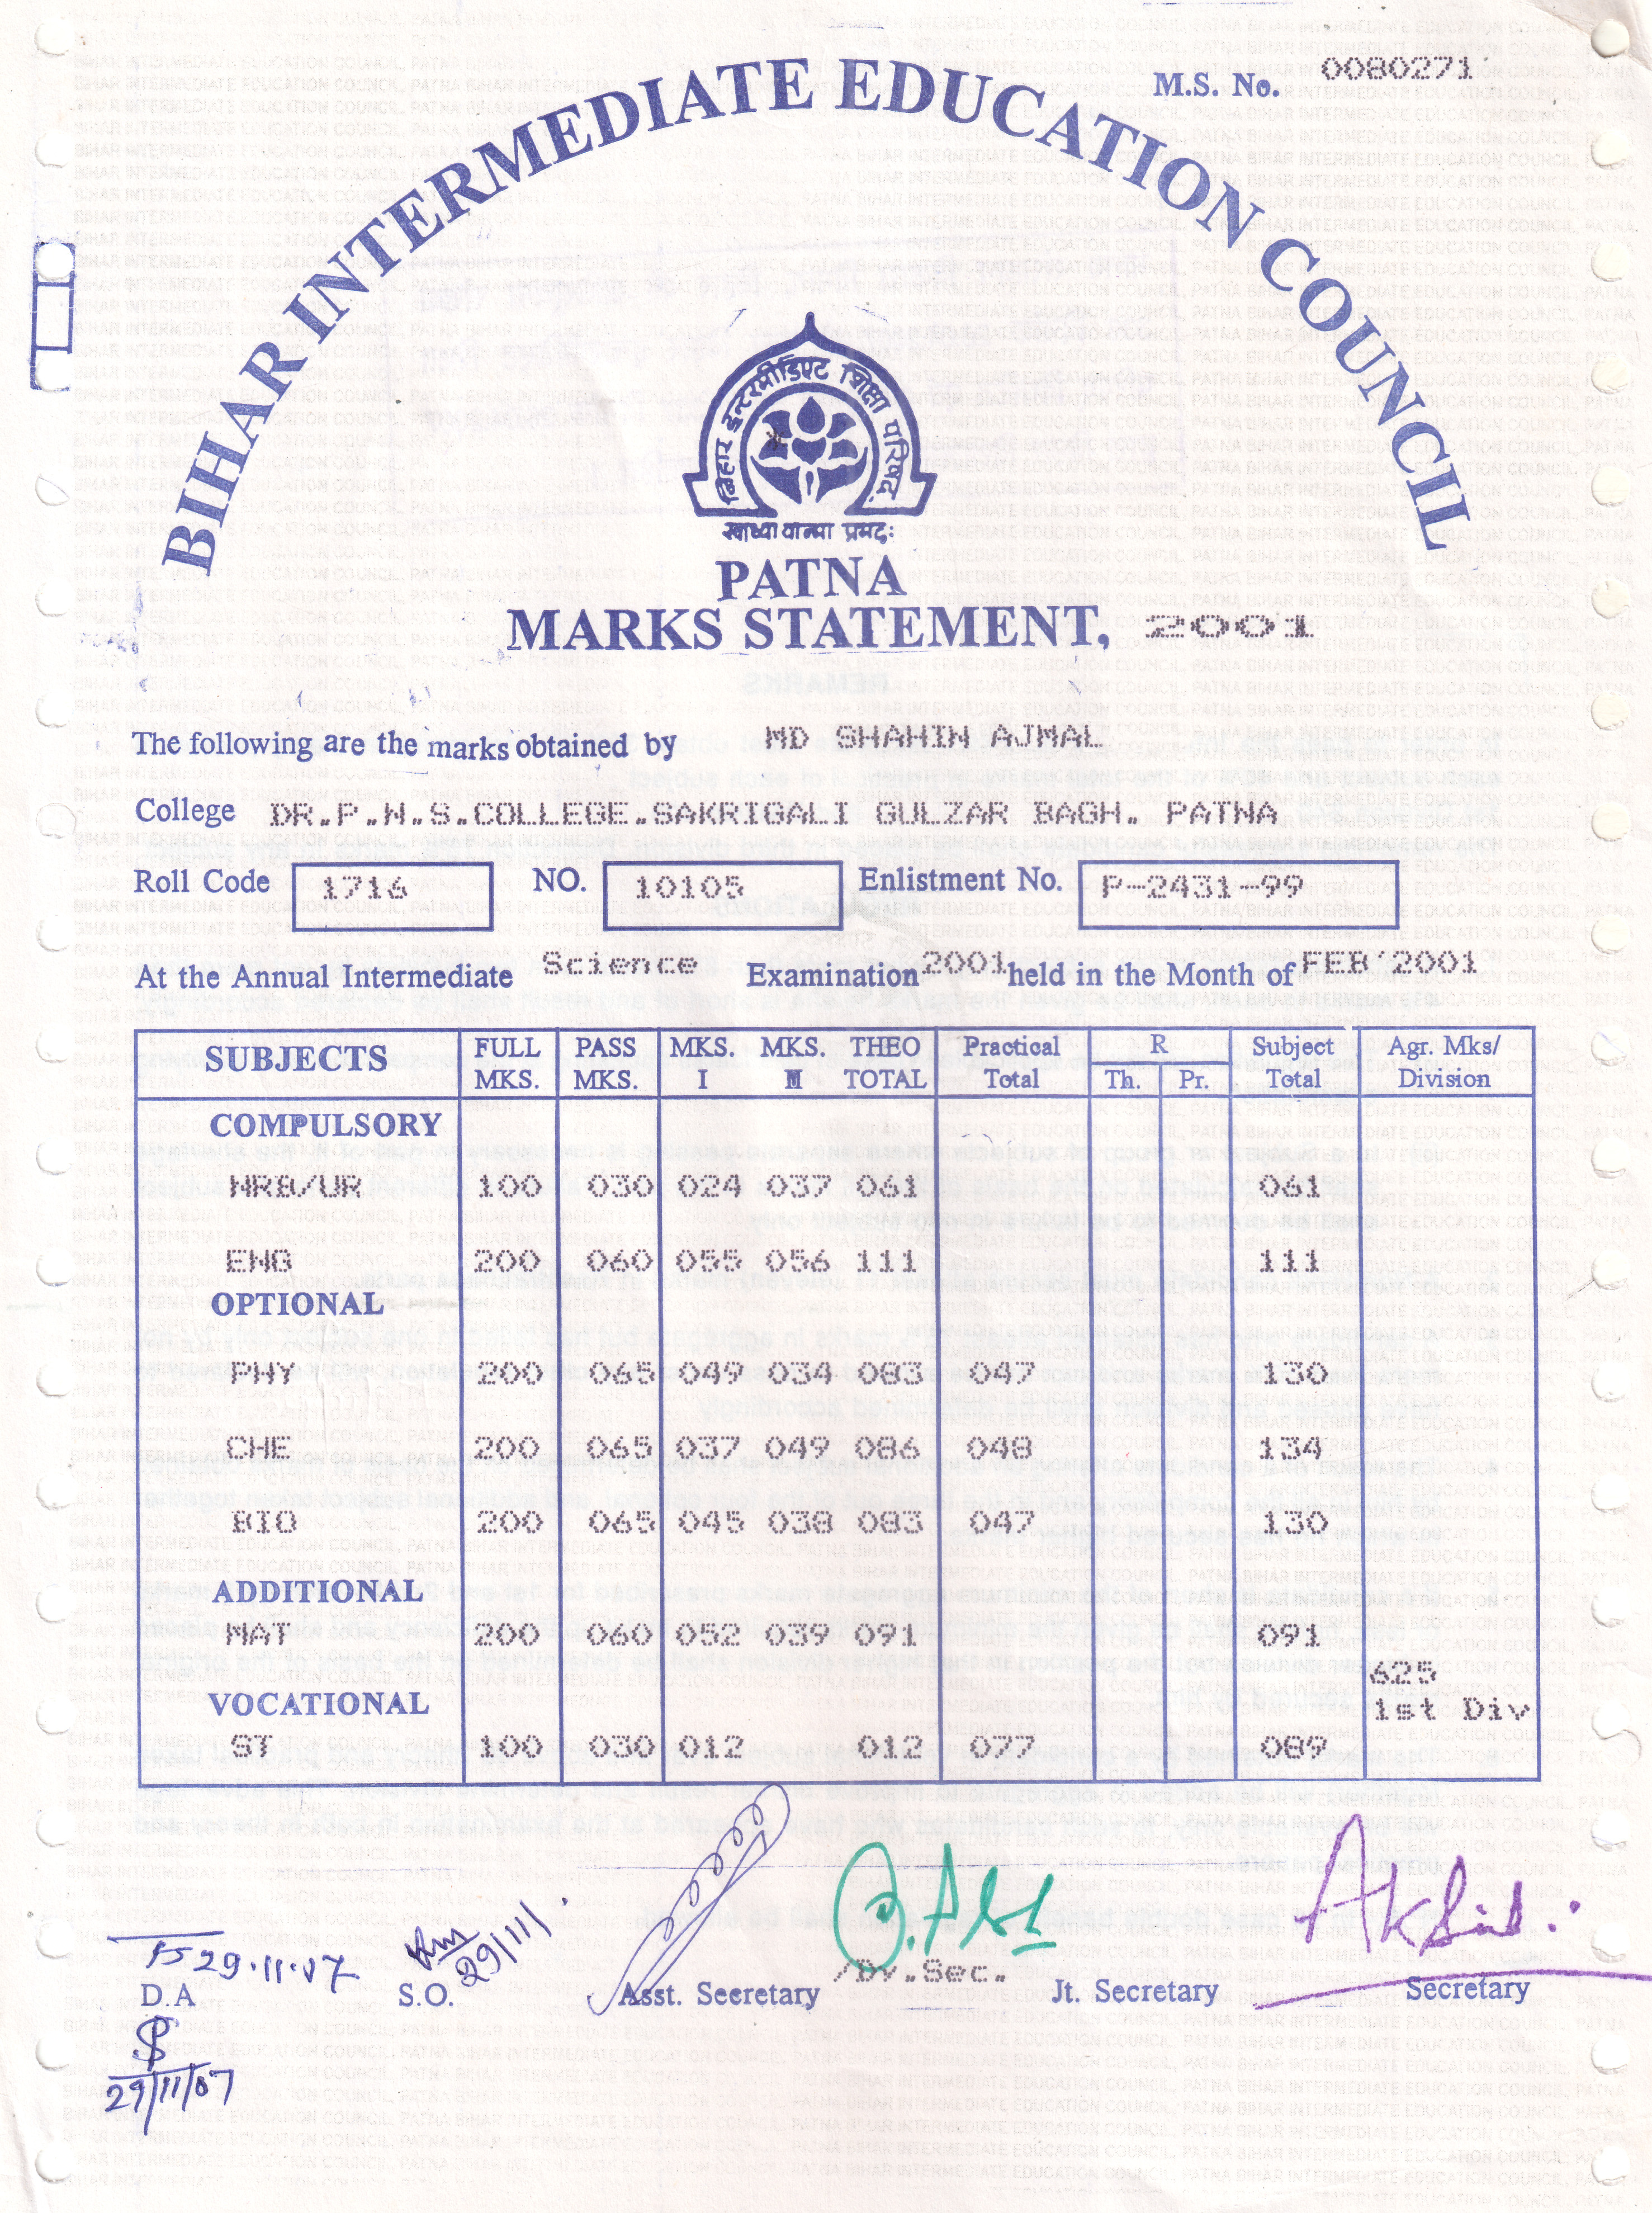 M.S. No. 0080271
BIHAR INTERMEDIATE EDUCATION COUNCIL
बिहार इन्टरमीडिएट शिक्षा परिषद्
PATNA
MARKS STATEMENT, 2001
The following are the marks obtained by MD SHAHIN AJMAL
College DR.P.N.S.COLLEGE.SAKRIGALI GULZAR BAGH. PATNA
Roll Code 1716 NO. 10105 Enlistment No. P-2431-99
At the Annual Intermediate Science Examination 2001 held in the Month of FEB'2001
SUBJECTS FULL MKS. PASS MKS. MKS. I MKS. II THEO TOTAL Practical Total R Th. Pr. Subject Total Agr. Mks/ Division
COMPULSORY
NRB/UR 100 030 024 037 061 061
ENG 200 060 055 056 111 111
OPTIONAL
PHY 200 065 049 034 083 047 130
CHE 200 065 037 049 086 048 134
BIO 200 065 045 038 083 047 130
ADDITIONAL
MAT 200 060 052 039 091 091
625
VOCATIONAL 1st Div
ST 100 030 012 012 077 089
29.11.07 29/11/
/Dy.Sec.
D.A S.O. Asst. Secretary Jt. Secretary Secretary
29/11/07